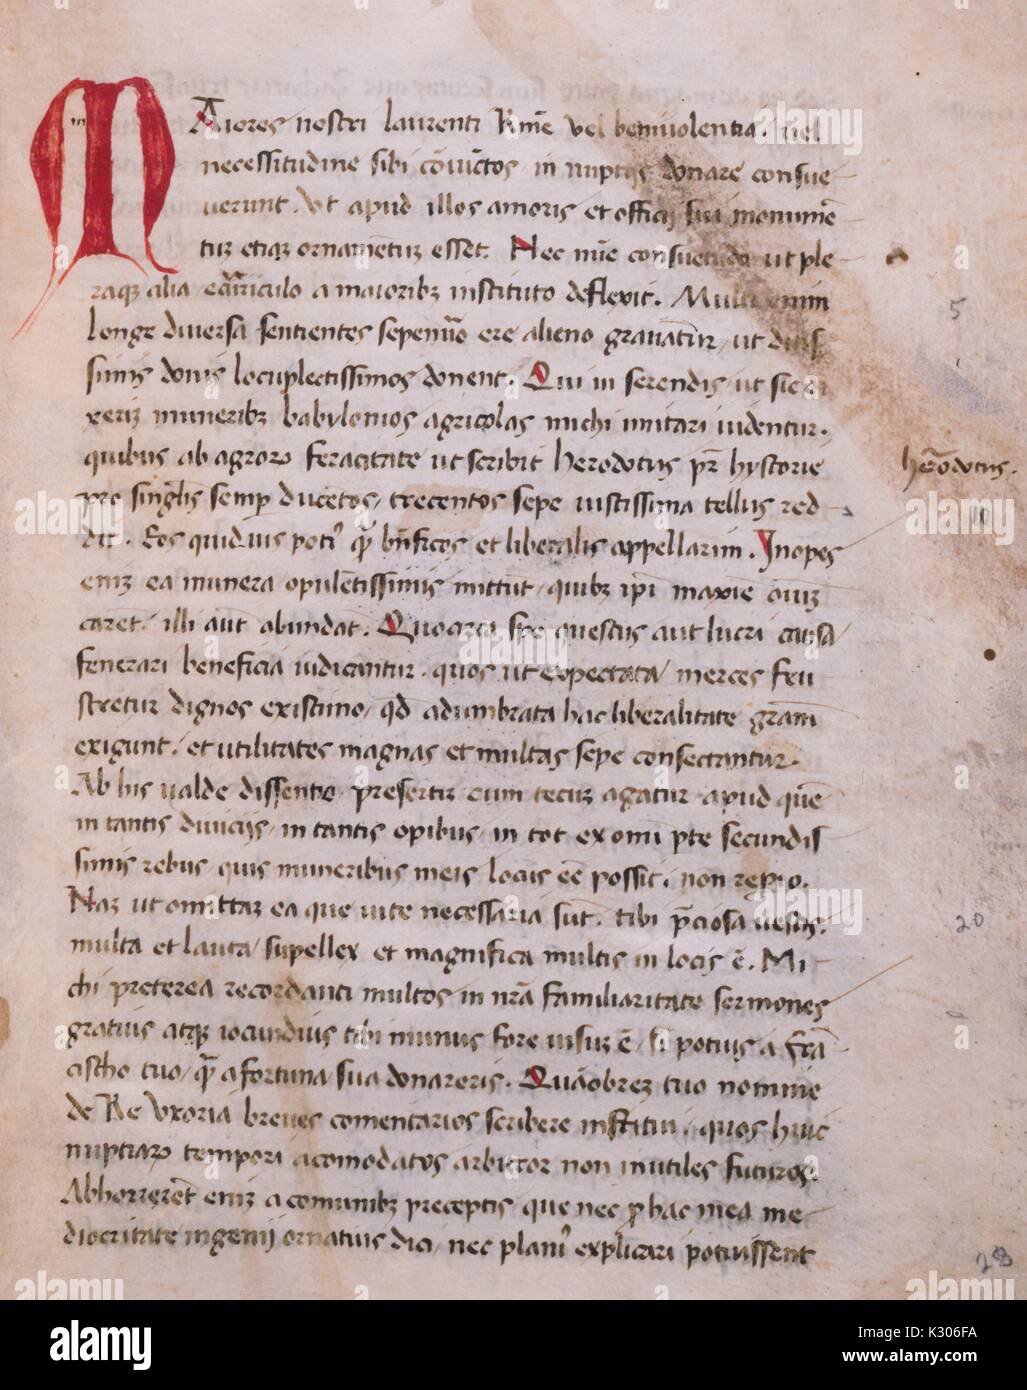 MAiores nostri laurenti kme vel benivolentia. vel
necessitudine sibi coniuctos in nuptijs donare consue
verunt. Vt apud illos amoris et officij sui monume
tuz etiaz ornametuz esset. Nec nuc consuetudo ut ple
raqz alia curriculo a maioribz instituto deflexit. Multi enim
longe diversa sentientes sepenuo ere alieno gravatur, ut ditis
simis donis locupletissimos donent. Qui in ferendis ut sic di
xeriz muneribz babylonios agricolas michi imitari uidentur.
quibus ab agroꝝ feracitate ut scribit herodotus pr hystorie
pro singlis semp ducetos, trecentos sepe iustissima tellus red
dit. Eos quiduis poti' qm bnficos et liberalis appellarim. Inopes
eniz ea munera opuletissimis mittut, quibz ipi maxie oiuz
caret. illi aut abundat. Quocirca spe questus aut lucri causa
fenerari beneficia iudicantur. quos ut expectata merces fru
stretur dignos existimo, qd adumbrata hac liberalitate gram
exigunt. et utilitates magnas et multas sepe consectantur.
Ab his valde dissentio presertiz cum tecuz agatur apud que
in tantis diuicijs, in tantis opibus, in tot ex omi pte secundis
simis rebus quis muneribus meis locus ee possit. non reperio.
Naz ut omittaz ea que uite necessaria sut. tibi pciosa uestis.
multa et lauta supellex et magnifica multis in locis e. Mi-
chi preterea recordanti multos in nra familiaritate sermones
gratius atqz iocundius tibi munus fore uisuz e, si potius a fra
cischo tuo, qm a fortuna sua donareris. Quaobrez tuo nomine
de Re Vxoria breues comentarios scribere institui. quos huic
nuptiaꝝ tempori acomodatos arbitror non inutiles futuros.
Abhorreret eniz a comunibz preceptis que nec p hac mea me-
diocritate ingenij ornatius dici, nec plani' explicari potuissent
herodotus.
5
10
20
28
alamy
a
alamy stock photo
K306FA
www.alamy.com